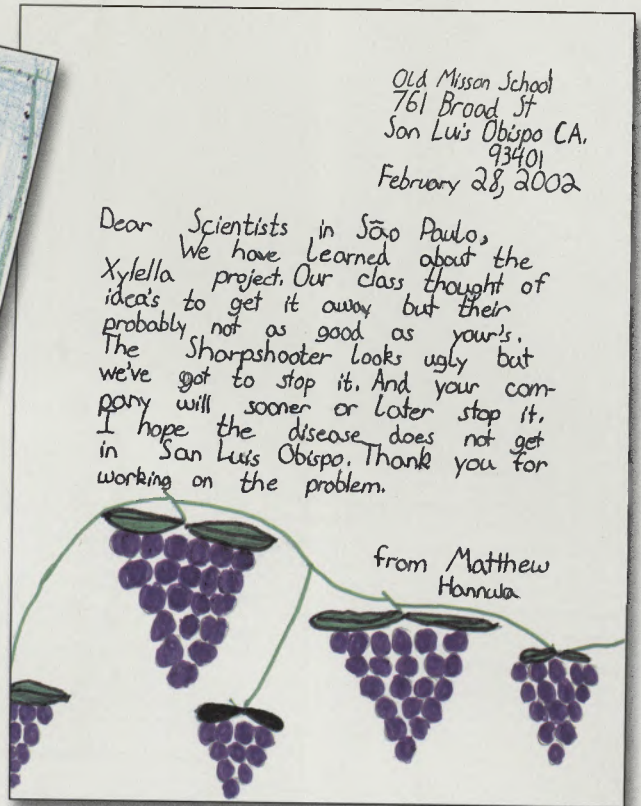 Old Misson School
761 Broad St
San Luis Obispo CA.
93401
February 28, 2002
Dear Scientists in São Paulo,
We have learned about the
Xylella project. Our class thought of
idea's to get it away but their
probably not as good as your's.
The Sharpshooter looks ugly but
we've got to stop it. And your com-
pany will sooner or later stop it.
I hope the disease does not get
in San Luis Obispo. Thank you for
working on the problem.
from Matthew
Hannula